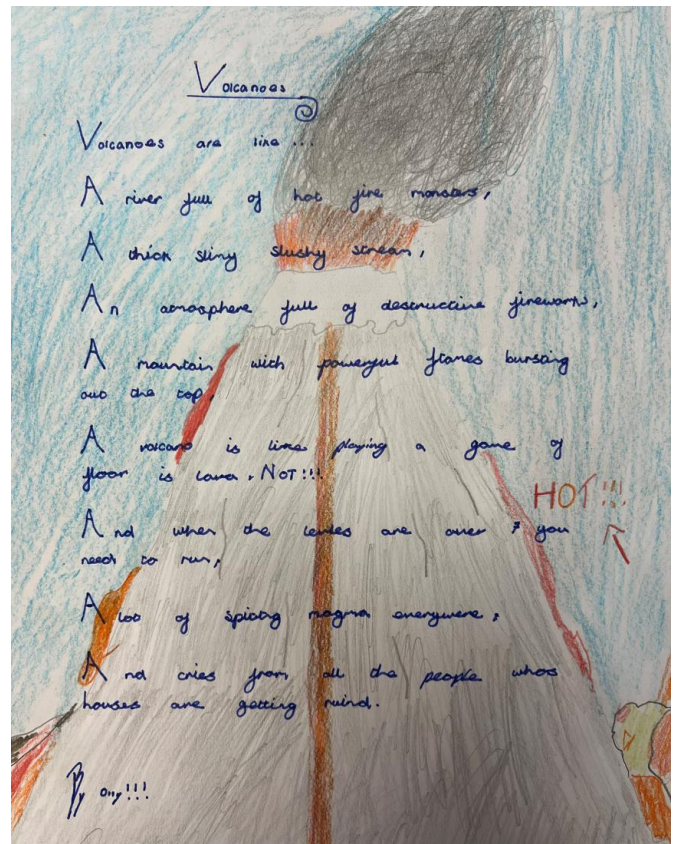 Volcanoes
Volcanoes are like ...
A river full of hot fire monsters,
A thick slimy slushy stream,
An atmosphere full of destructive fireworks,
A mountain with powerful flames bursting
out the top,
A volcano is like playing a game of
floor is lava, NOT!!!
HOT!!!
And when the levles are over 7 you
need to run,
A lot of spiting magma everywere,
And cries from all the people whos
houses are getting ruind.
By Olly!!!